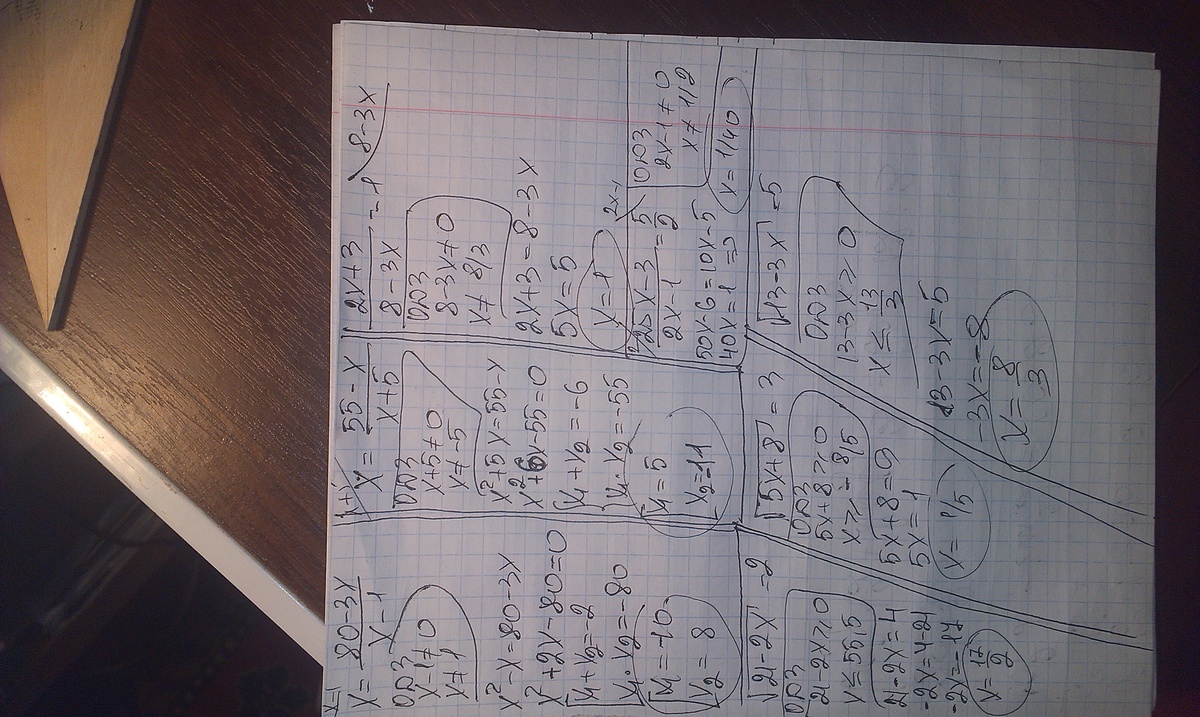 x-1
x = 80-3x / x-1
ОДЗ
x-1≠0
x≠1
x²-x=80-3x
x²+2x-80=0
x₁+x₂=-2
x₁·x₂=-80
x₁=-10
x₂=8
x = 55-x / x+5
ОДЗ
x+5≠0
x≠-5
x²+5x=55-x
x²+6x-55=0
x₁+x₂=-6
x₁·x₂=-55
x₁=5
x₂=11
2x+3 / 8-3x = 1 \ 8-3x
ОДЗ
8-3x≠0
x≠8/3
2x+3=8-3x
5x=5
x=1
2/ 25x-3 / 2x-1 = 5/2 \ 2x-1
ОДЗ
2x-1≠0
x≠1/2
50x-6=10x-5
40x=1 =>
x=1/40
√21-2x =2
ОДЗ
21-2x≥0
x≤55,5
21-2x=4
-2x=4-21
-2x=-17
x=17/2
√5x+8 = 3
ОДЗ
5x+8≥0
x≥-8/5
5x+8=9
5x=1
x=1/5
√13-3x =5
ОДЗ
13-3x≥0
x≤13/3
13-3x=5
-3x=-8
x=8/3